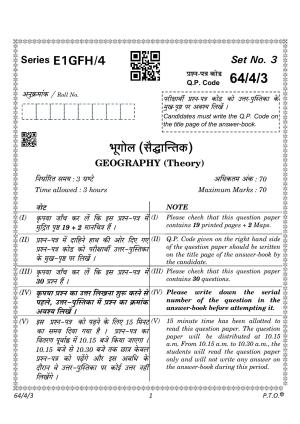 Series E1GFH/4
Set No. 3
प्रश्न-पत्र कोड
Q.P. Code 64/4/3
अनुक्रमांक / Roll No.
परीक्षार्थी प्रश्न-पत्र कोड को उत्तर-पुस्तिका के
मुख-पृष्ठ पर अवश्य लिखें ।
Candidates must write the Q.P. Code on
the title page of the answer-book.
भूगोल (सैद्धान्तिक)
GEOGRAPHY (Theory)
निर्धारित समय : 3 घण्टे
अधिकतम अंक : 70
Time allowed : 3 hours
Maximum Marks : 70
नोट
(I) कृपया जाँच कर लें कि इस प्रश्न-पत्र में
मुद्रित पृष्ठ 19 + 2 मानचित्र हैं ।
(II) प्रश्न-पत्र में दाहिने हाथ की ओर दिए गए
प्रश्न-पत्र कोड को परीक्षार्थी उत्तर-पुस्तिका
के मुख-पृष्ठ पर लिखें ।
(III) कृपया जाँच कर लें कि इस प्रश्न-पत्र में
30 प्रश्न हैं ।
(IV) कृपया प्रश्न का उत्तर लिखना शुरू करने से
पहले, उत्तर-पुस्तिका में प्रश्न का क्रमांक
अवश्य लिखें ।
(V) इस प्रश्न-पत्र को पढ़ने के लिए 15 मिनट
का समय दिया गया है । प्रश्न-पत्र का
वितरण पूर्वाह्न में 10.15 बजे किया जाएगा ।
10.15 बजे से 10.30 बजे तक छात्र केवल
प्रश्न-पत्र को पढ़ेंगे और इस अवधि के
दौरान वे उत्तर-पुस्तिका पर कोई उत्तर नहीं
लिखेंगे ।
NOTE
(I) Please check that this question paper
contains 19 printed pages + 2 Maps.
(II) Q.P. Code given on the right hand side
of the question paper should be written
on the title page of the answer-book by
the candidate.
(III) Please check that this question paper
contains 30 questions.
(IV) Please write down the serial
number of the question in the
answer-book before attempting it.
(V) 15 minute time has been allotted to
read this question paper. The question
paper will be distributed at 10.15
a.m. From 10.15 a.m. to 10.30 a.m., the
students will read the question paper
only and will not write any answer on
the answer-book during this period.
64/4/3
1
P.T.O.